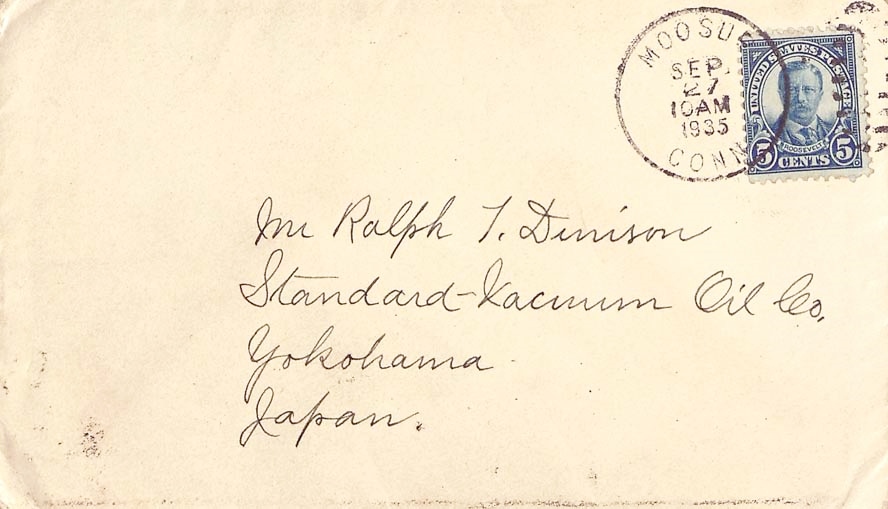 MOOSUP
SEP
27
10AM
1935
CONN
UNITED STATES POSTAGE
ROOSEVELT
5 CENTS 5
Mr Ralph T. Denison
Standard-Vacuum Oil Co.
Yokohama
Japan.